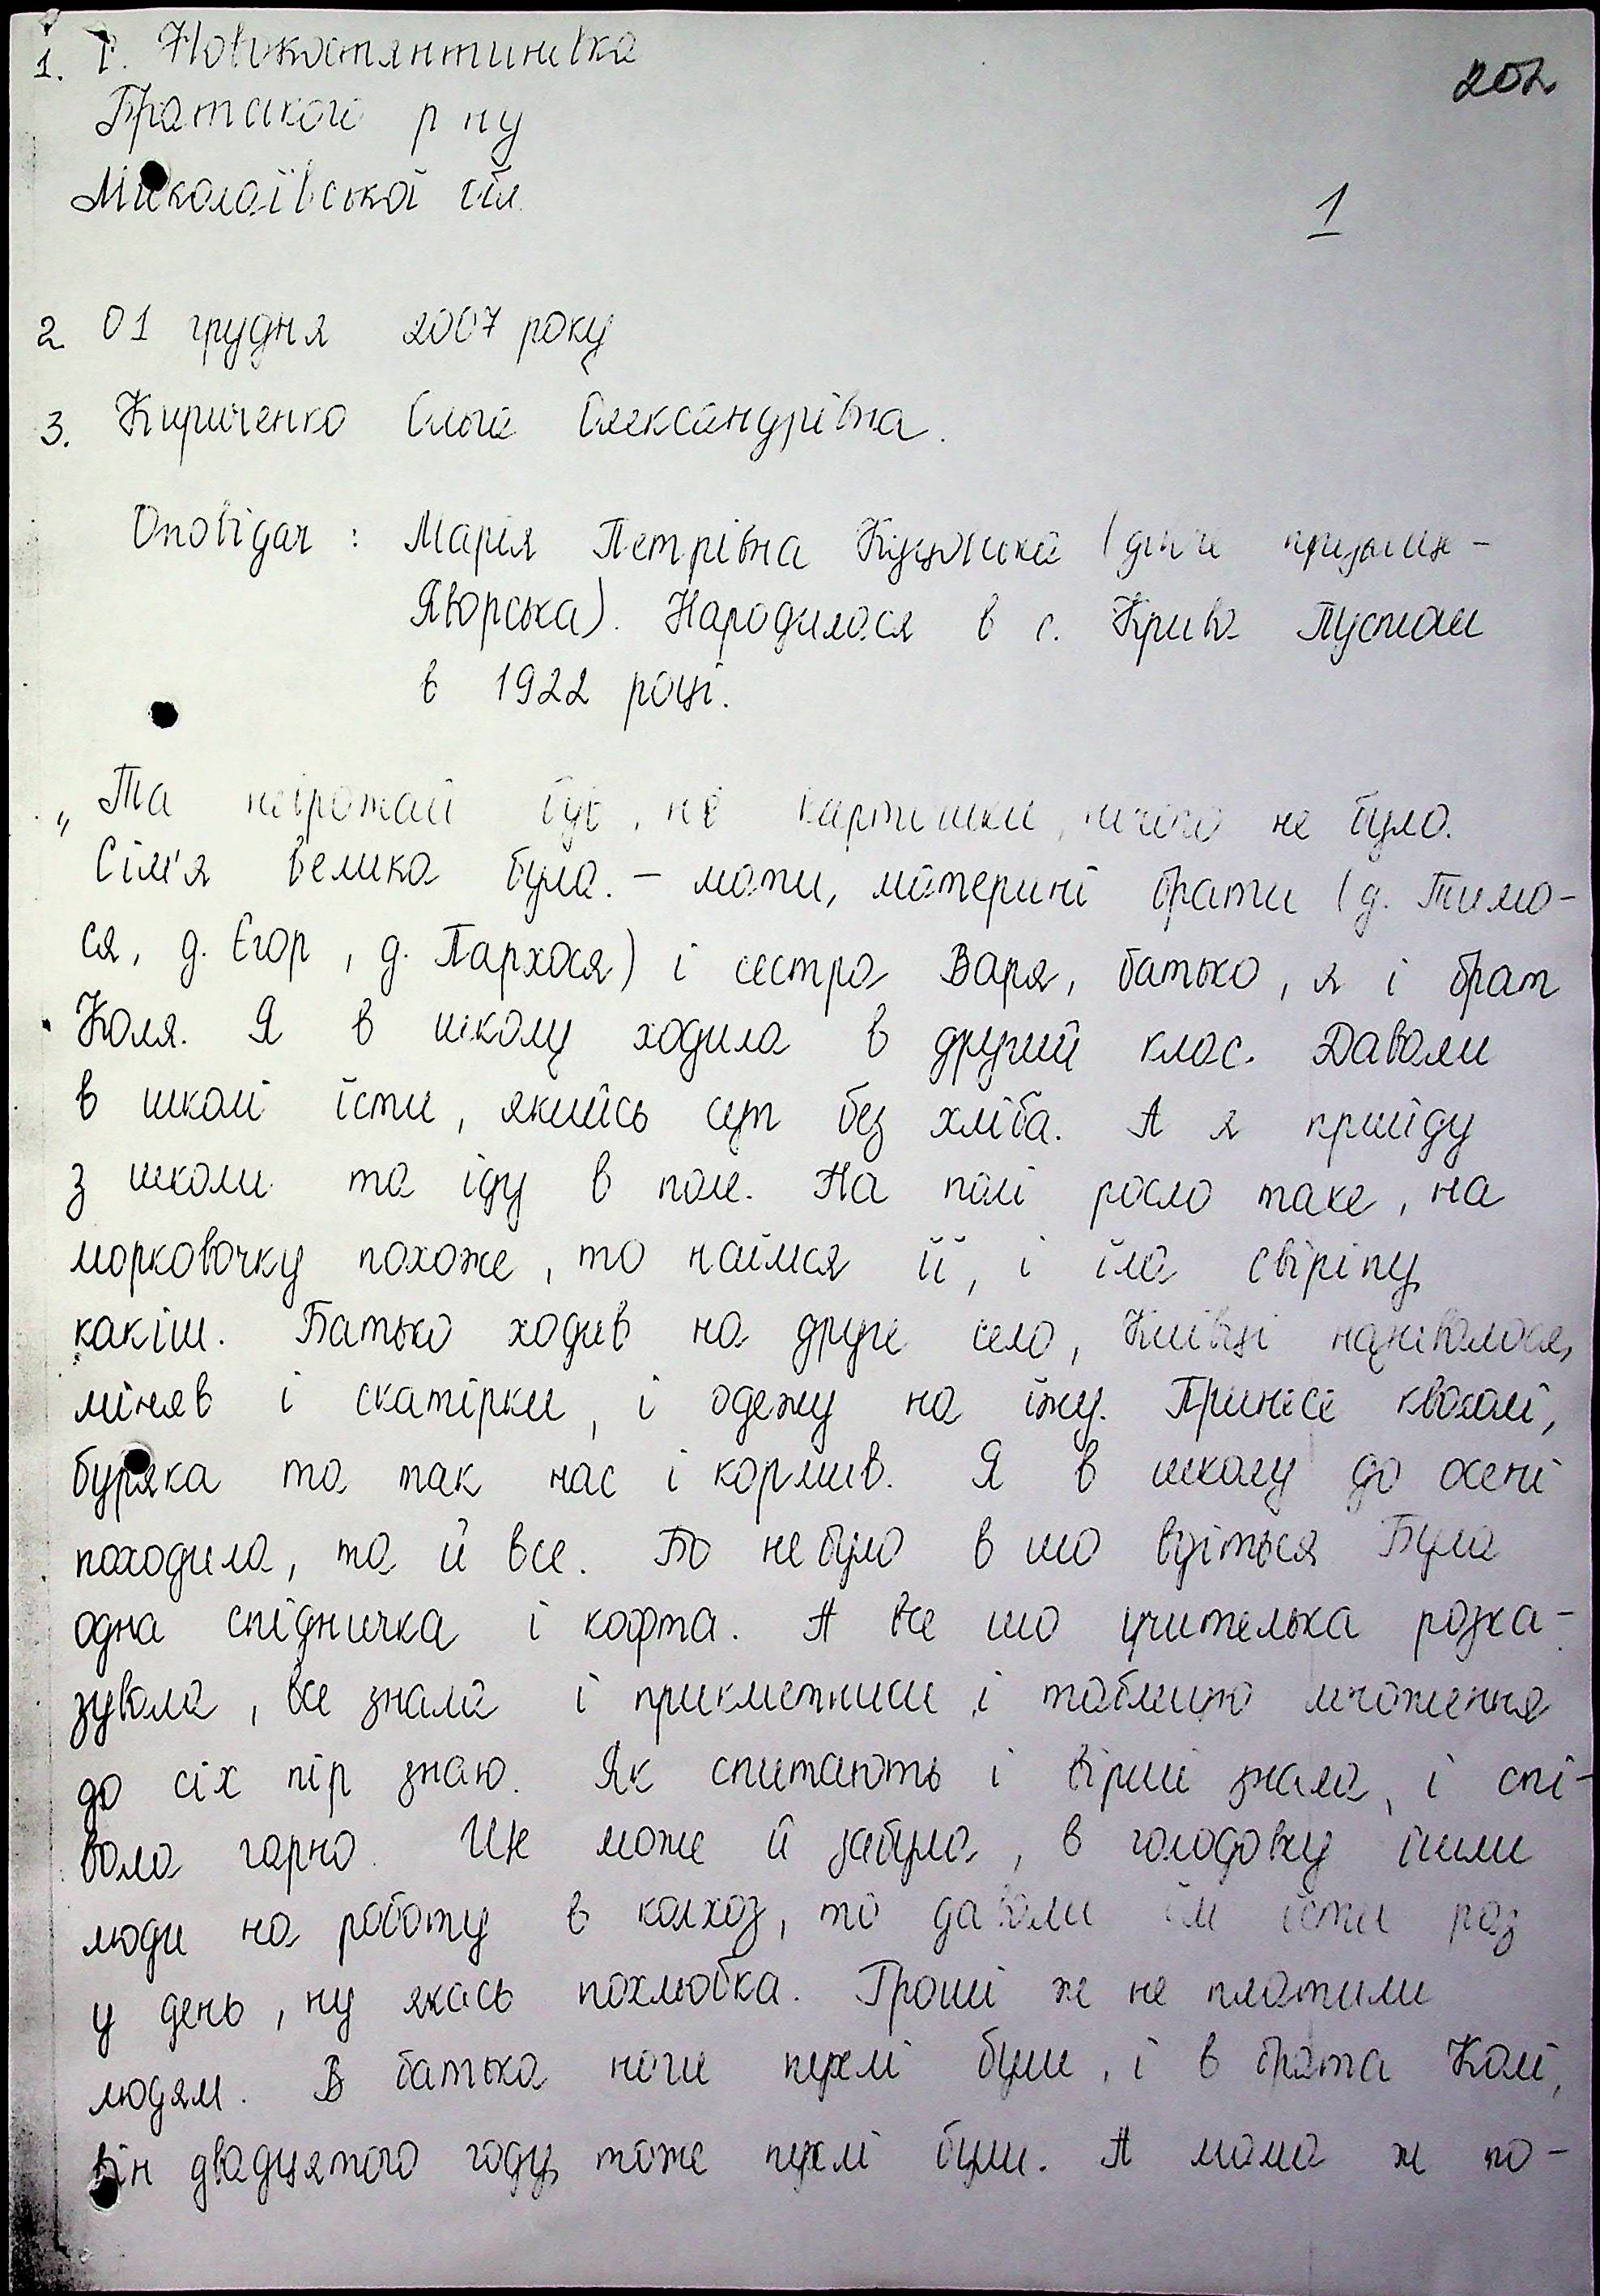 202
1. с. Новокостянтинівка
Братського р-ну
Миколаївської обл.
1
2. 01 грудня 2007 року
3. Кириченко Ольга Олександрівна.
Оповідач: Марія Петрівна (дівоче
Яворська). Народилася в с. Крива Пустош
в 1922 році.
„Та неврожай був, не картошки, нічого не було.
Сім'я велика була. – мати, материні брати (д. Тимо-
ся, д. Єгор, д. Пархося) і сестра Варя, батько, я і брат
Коля. Я в школу ходила в другий клас. Давали
в школі їсти, якийсь суп без хліба. А я прийду
з школи та іду в поле. На полі росло таке, на
морковочку похоже, то наїмся її, і їла свіріпу,
какіш. Батько ходив на друге село, Киівці
міняв і скатірки, і одежу на їжу. Принесе квасолі,
буряка то так нас і кормив. Я в школу до осені
походила, та й все. Бо не було в шо вдіться. Була
одна спідничка і кофта. А все шо учителька розка-
зувала, все знала і прикметники і таблицю множення
до сіх пір знаю. Як спитають і вірші знала, і спі-
вала гарно. Це може й забула, в голодовку йшли
люди на роботу в колхоз, то давали їм їсти раз
у день, ну якась похльобка. Гроші ж не платили
людям. В батька ноги пухлі були, і в брата Колі,
він двадцятого году, тоже пухлі були. А мама ж по-